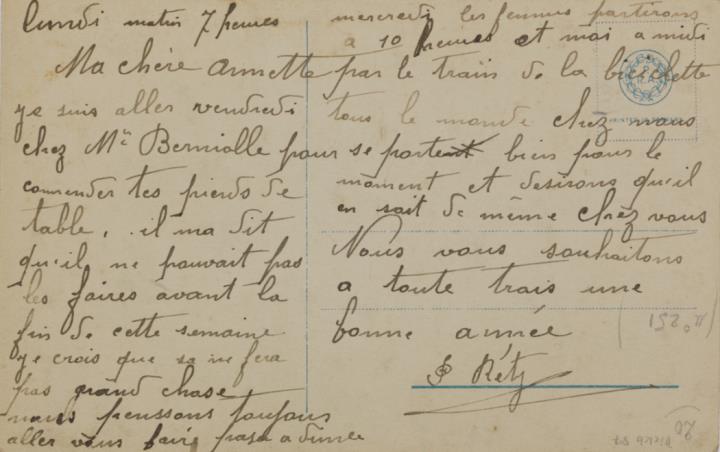 lundi matin 7 heures
Ma chère Annette
je suis aller vendredi
chez Mr Berniolle pour
commender tes pierds de
table, il ma dit
qu'il ne pouvait pas
les faires avant la
fin de cette semaine
je crois que sa ne fera
pas grand chose
nous penssons toujours
aller vous faire
mercredi les femmes partirons
a 10 heures et moi a midi
par le train de la biciclette
tous le monde chez nous
se portent bien pour le
moment et desirons qu'il
en soit de même chez vous
Nous vous souhaitons
a toute trois une
bonne année
Rétz